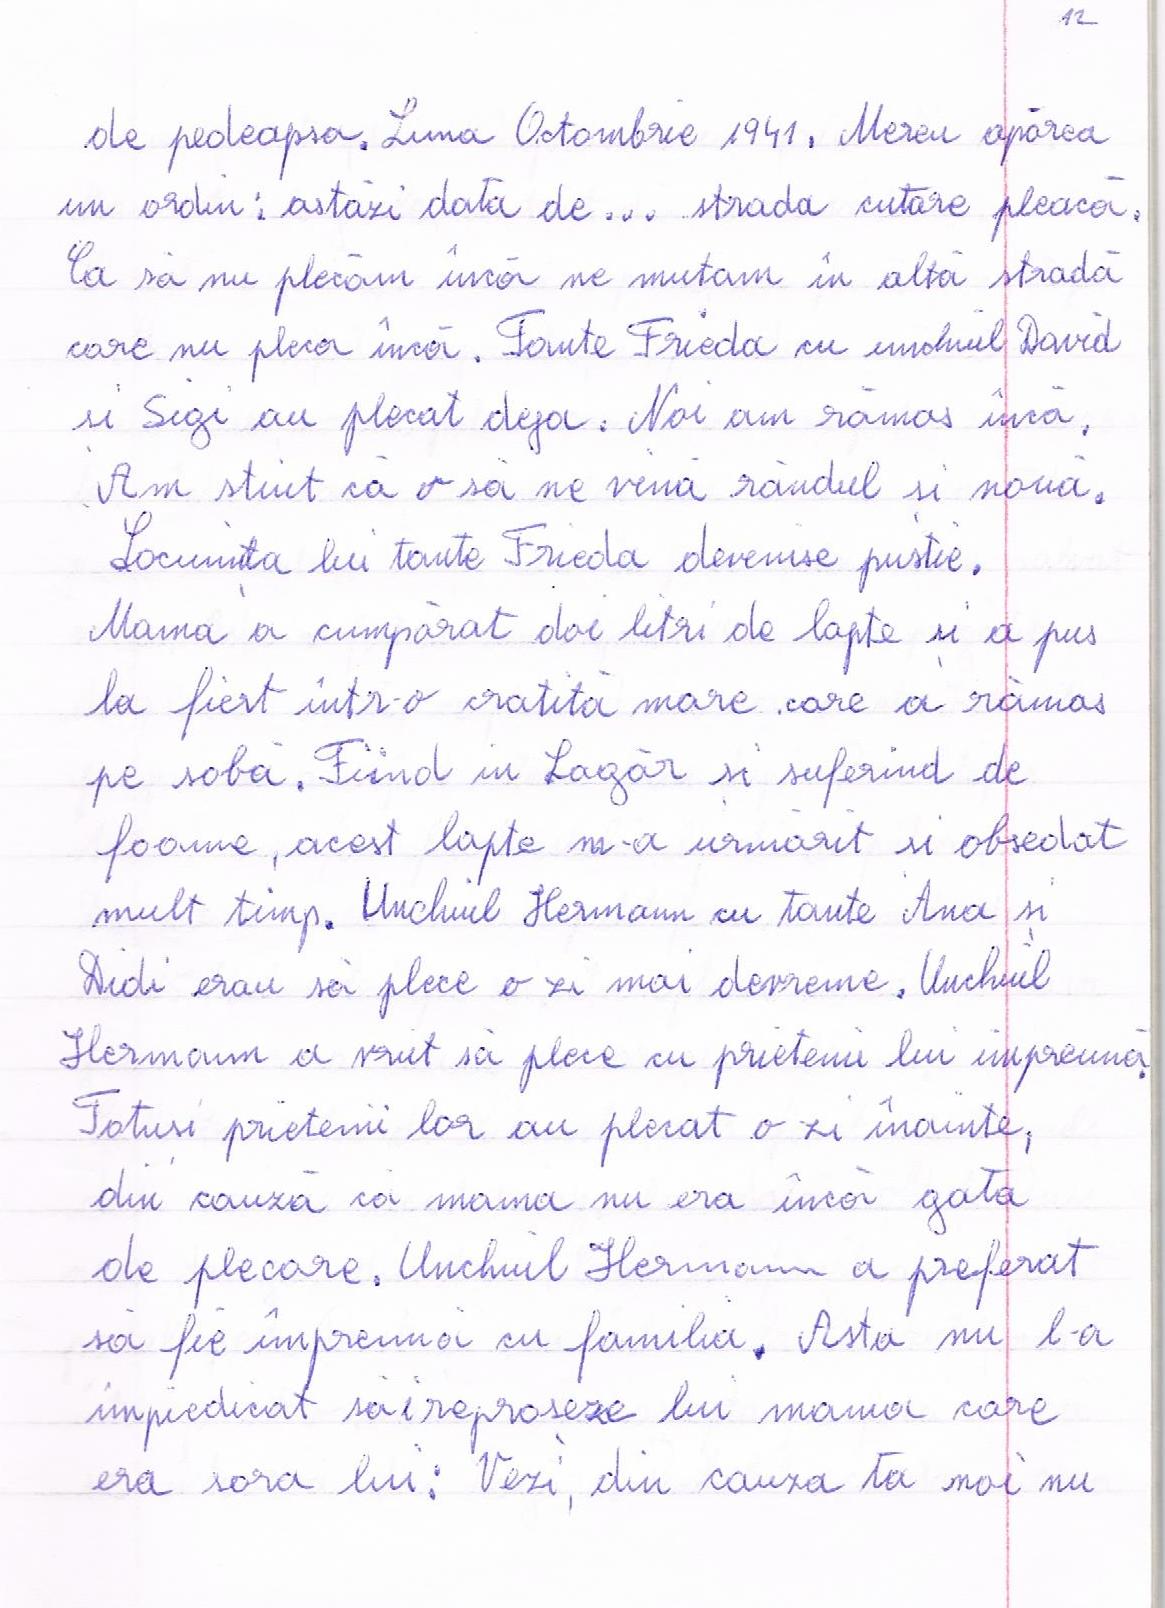 12
de pedeapsa. Luna Octombrie 1941. Mereu apărea
un ordin: astăzi data de... strada cutare pleacă.
Ca să nu plecăm încă ne mutam în altă stradă
care nu pleca încă. Tante Frieda cu unchiul David
și Sigi au plecat deja. Noi am rămas încă.
Am știut că o să ne vină rândul și nouă.
Locuința lui tante Frieda devenise pustie.
Mama a cumpărat doi litri de lapte și a pus
la fiert într-o cratiță mare care a rămas
pe sobă. Fiind in Lagăr și suferind de
foame, acest lapte m-a urmărit si obsedat
mult timp. Unchiul Hermann cu tante Ana și
Didi erau să plece o zi mai devreme. Unchiul
Hermann a vrut să plece cu prietenii lui împreună.
Totuși prietenii lor au plecat o zi înainte,
din cauză că mama nu era încă gata
de plecare. Unchiul Hermann a preferat
să fie împreună cu familia. Asta nu l-a
împiedicat să i reproseze lui mama care
era sora lui: Vezi, din cauza ta noi nu